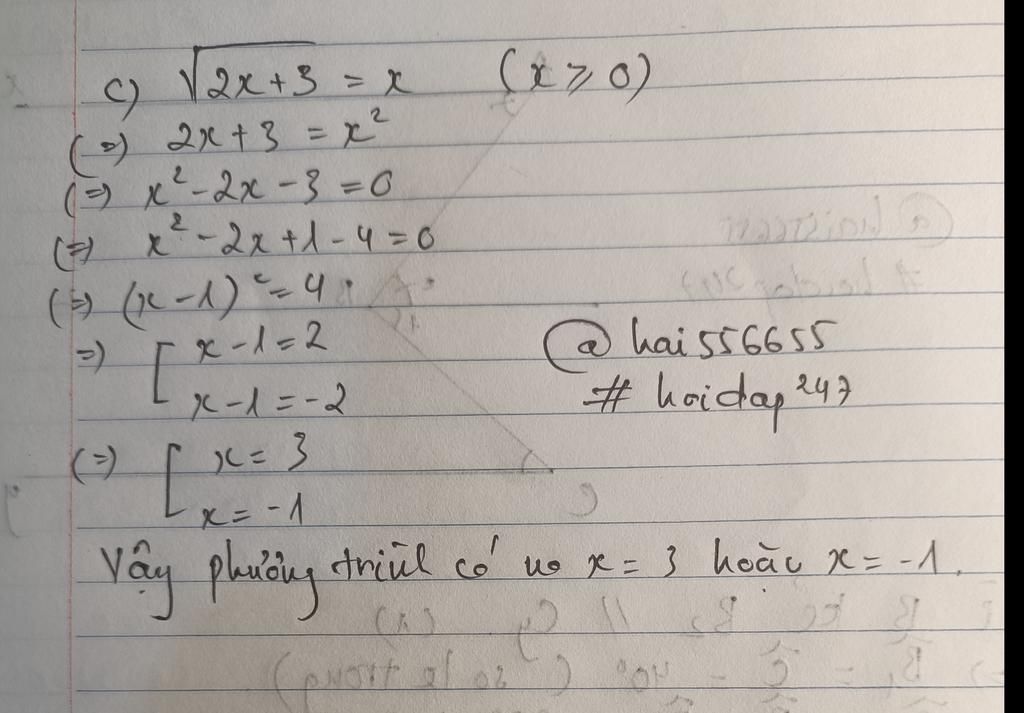 c) √(2x+3) = x (x ≥ 0)
(=) 2x+3 = x²
(=) x² - 2x - 3 = 0
(=) x² - 2x + 1 - 4 = 0
(=) (x - 1)² = 4
=) [ x - 1 = 2
x - 1 = -2
@ hai556655
# hoidap247
(=) [ x = 3
x = -1
Vậy phương trình có no x = 3 hoặc x = -1.